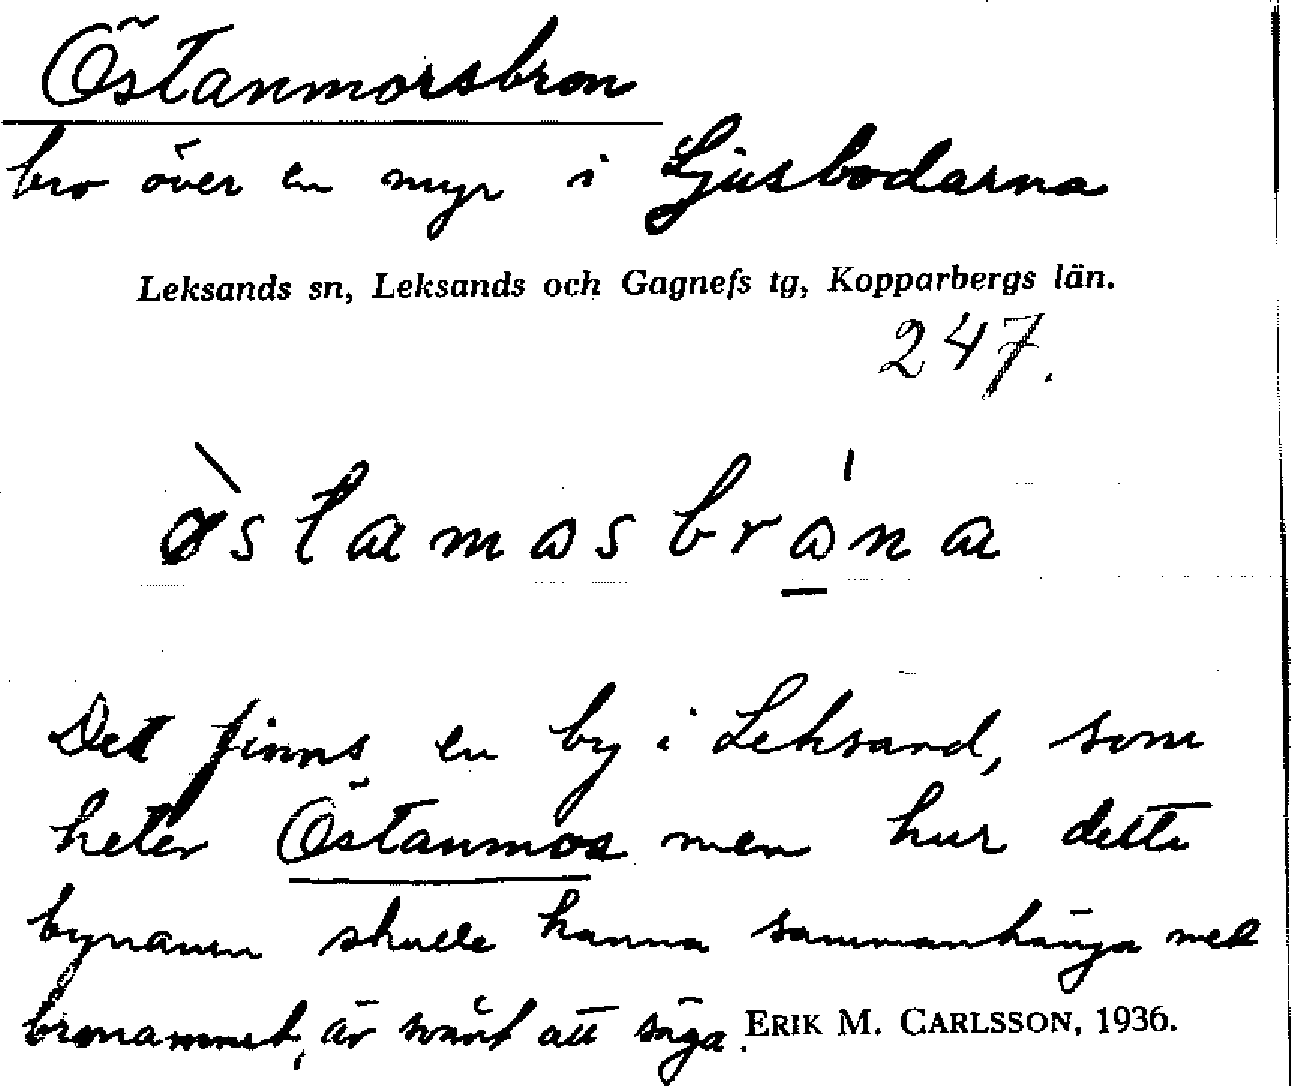 Östanmorsbron
bro över en myr i Ljusbodarna
Leksands sn, Leksands och Gagnefs tg, Kopparbergs län.
247.
östamosbróna
Det finns en by i Leksand, som
heter Östanmor men hur detta
bynamn skulle kunna sammanhänga med
bronamnet, är svårt att säga.
ERIK M. CARLSSON, 1936.